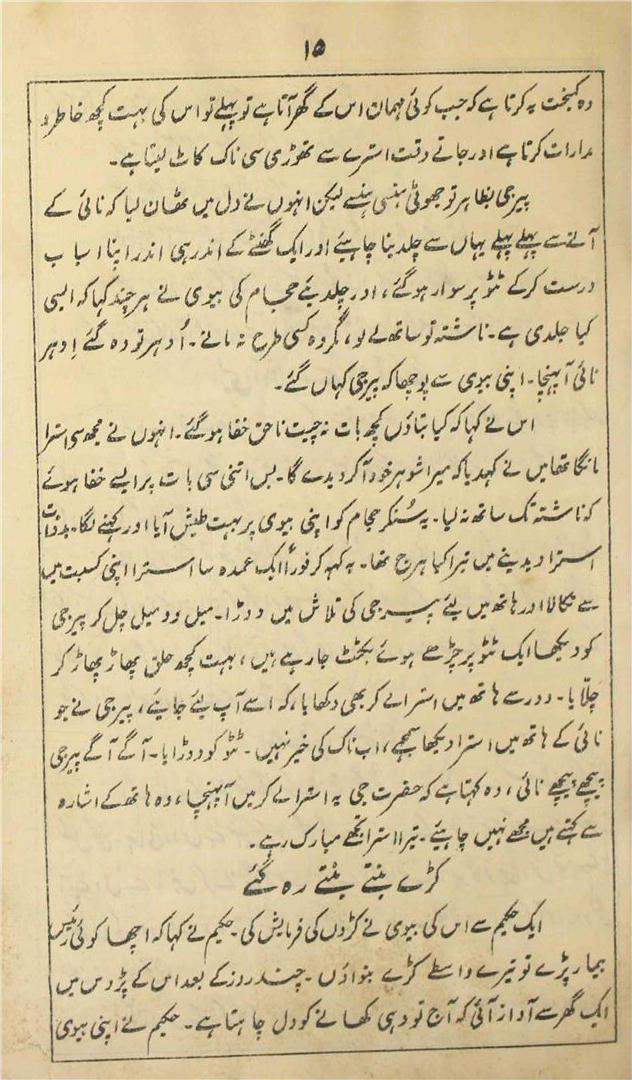 ۱۵
وہ کمبخت یہ کرتا ہے کہ جب کوئی مہمان اس کے گھر آتا ہے تو پہلے تو اس کی بہت کچھ خاطر و
مدارات کرتا ہے اور جاتے وقت استرے سے تھوڑی سی ناک کاٹ لیتا ہے۔
پیر جی بظاہر تو جھوٹی ہنسی ہنسے لیکن انہوں نے دل میں ٹھان لیا کہ نائی کے
آنے سے پہلے پہلے یہاں سے چلدینا چاہیئے اور ایک گھنٹے کے اندر ہی اندر اپنا اسباب
درست کرکے ٹٹو پر سوار ہو گئے، اور چلدیئے حجام کی بیوی نے ہر چند کہا کہ ایسی
کیا جلدی ہے۔ ناشتہ تو ساتھ لے لو، مگر وہ کسی طرح نہ مانے۔ اُدہر تو وہ گئے اِدہر
نائی آپہنچا۔ اپنی بیوی سے پوچھا کہ پیر جی کہاں گئے۔
اس نے کہا کہ کیا بتاؤں کچھ بات نہ چیت ناحق خفا ہو گئے۔ انہوں نے مجھ سے استرا
مانگا تھا میں نے کہدیا کہ میرا شوہر خود آکر دیدے گا۔ بس اتنی سی بات پر ایسے خفا ہوئے
کہ ناشتہ تک ساتھ نہ لیا۔ یہ سُنکر حجام کو اپنی بیوی پر بہت طیش آیا اور کہنے لگا۔ بدذات
استرا دیدینے میں تیرا کیا ہرج تھا۔ یہ کہہ کر فوراً ایک عمدہ سا استرا اپنی کسبت میں
سے نکالا اور ہاتھ میں لئے پیر جی کی تلاش میں دوڑا۔ میل دو میل چل کر پیر جی
کو دیکھا ایک ٹٹو پر چڑھے ہوئے بگٹٹ جا رہے ہیں، بہت کچھ حلق پھاڑ پھاڑ کر
چلّایا۔ دور سے ہاتھ میں استرا لے کر بھی دکھایا، کہ اسے آپ لیئے جایئے، پیر جی نے جو
نائی کے ہاتھ میں استرا دیکھا سمجھے، اب ناک کی خیر نہیں۔ ٹٹو کو دوڑایا۔ آگے آگے پیر جی
پیچھے پیچھے نائی، وہ کہتا ہے کہ حضرت جی یہ استرا لے کر میں آپہنچا، وہ ہاتھ کے اشارہ
سے کہتے ہیں مجھے نہیں چاہیئے۔ تیرا استرا تجھے مبارک رہے۔
کڑے بنتے بنتے رہ گئے
ایک حکیم سے اس کی بیوی نے کڑوں کی فرمایش کی۔ حکیم نے کہا کہ اچھا کوئی رئیس
بیمار پڑے تو تیرے واسطے کڑے بنواؤں۔ چند روز کے بعد اس کے پڑوس میں
ایک گھر سے آواز آئی کہ آج تو دہی کھانے کو دل چاہتا ہے۔ حکیم نے اپنی بیوی